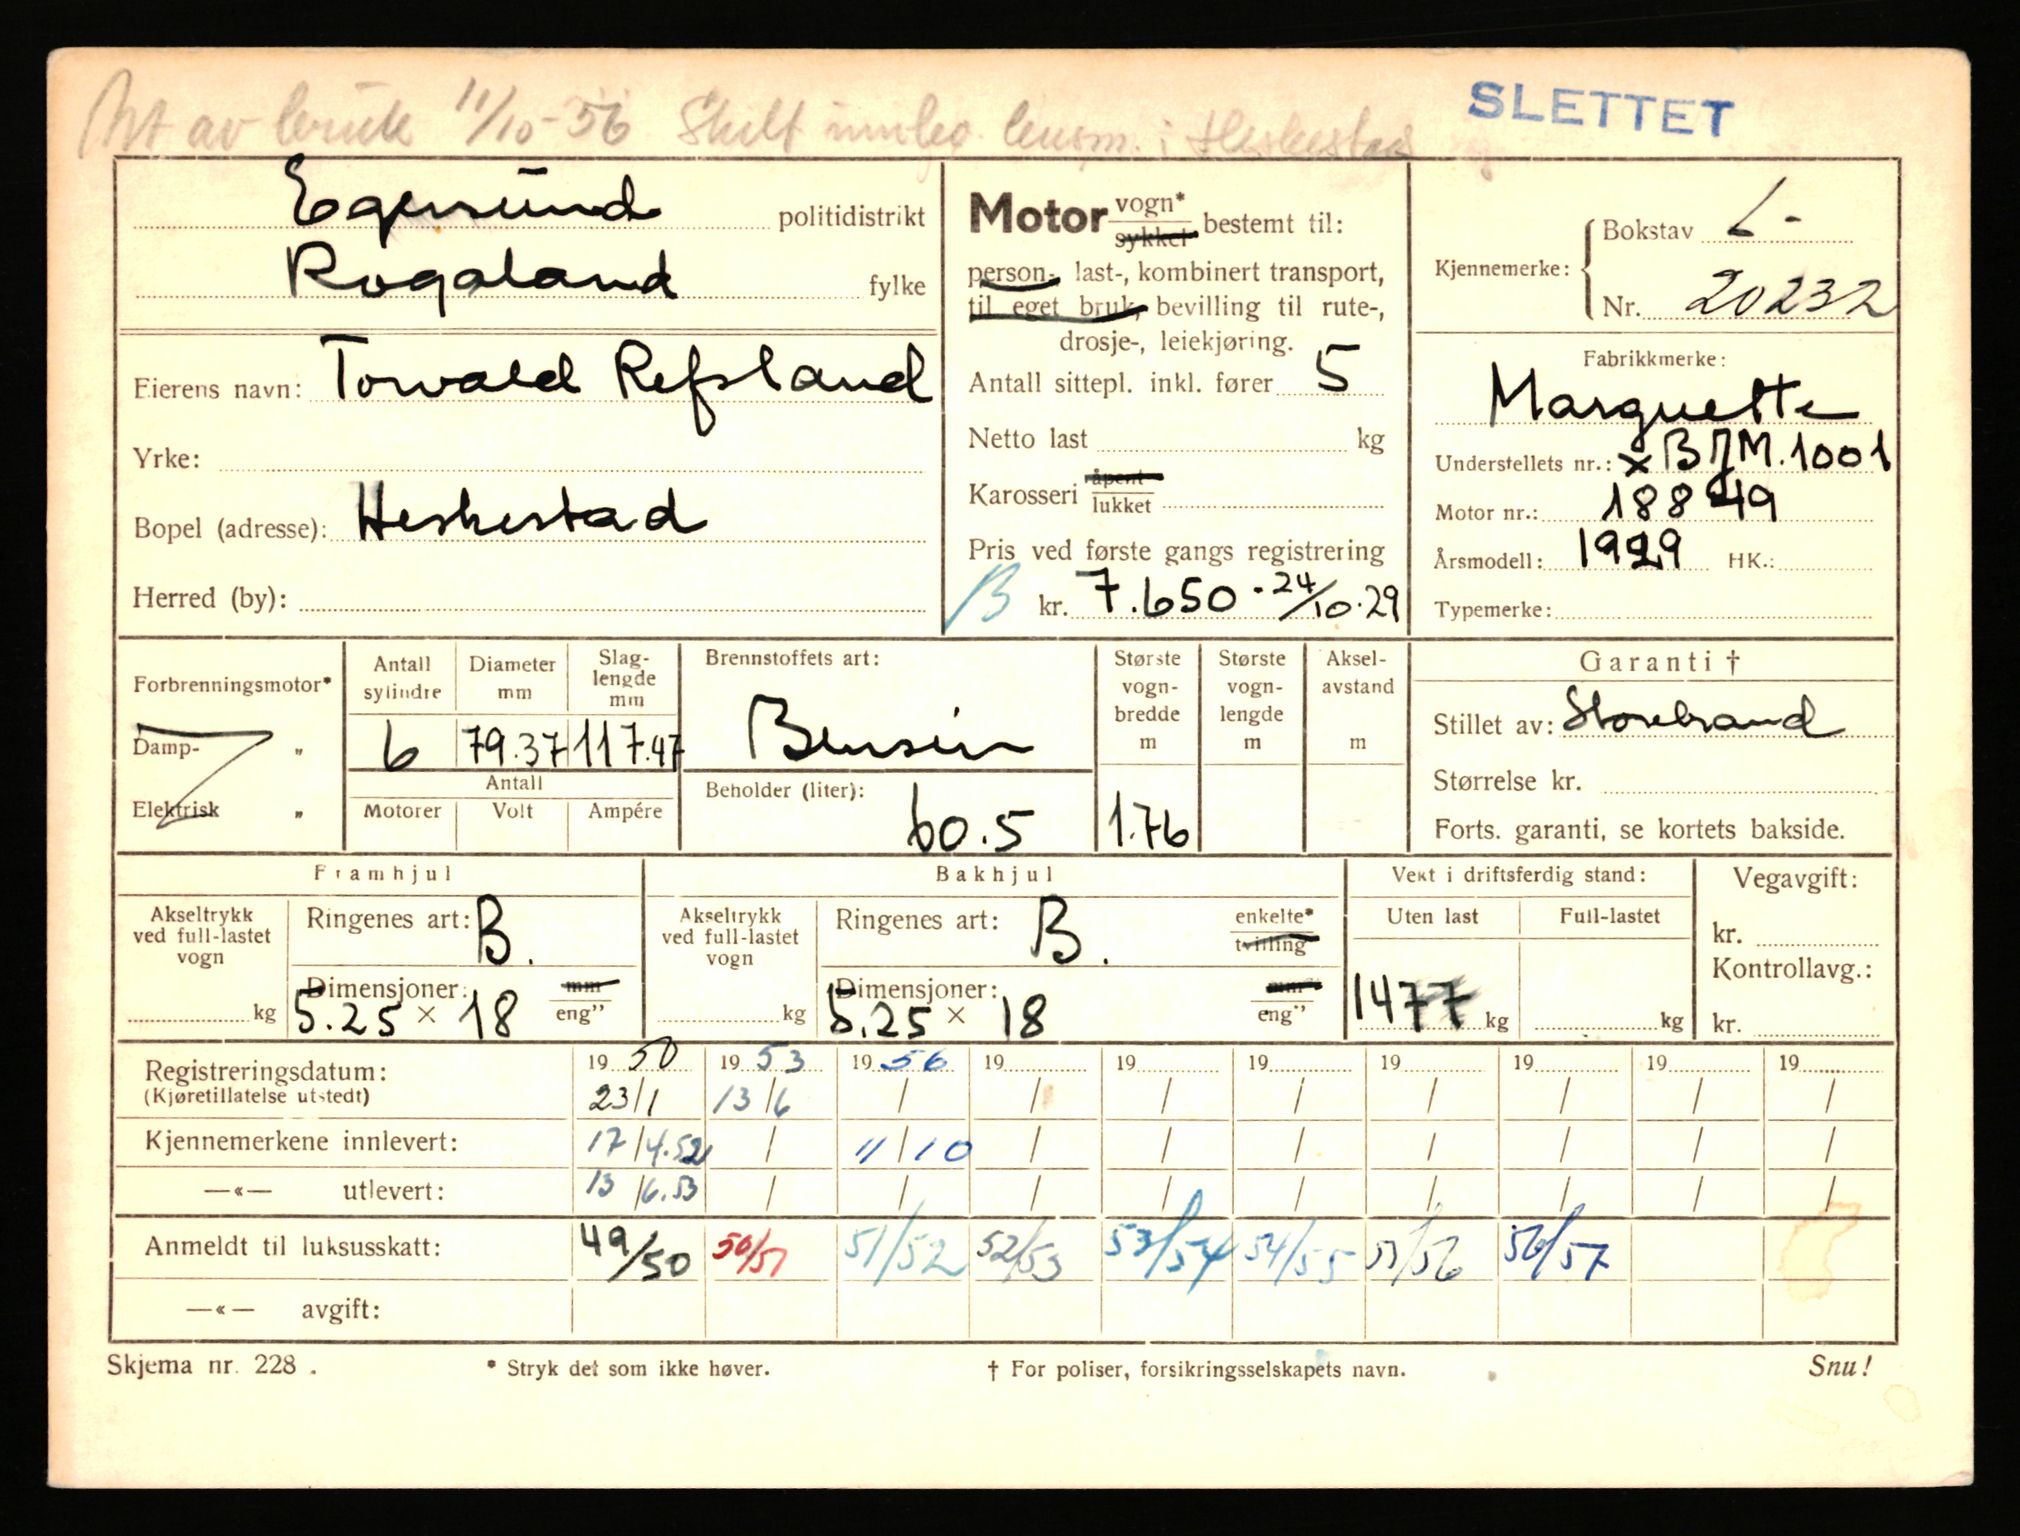 Ut av bruk 11/10-56 Skilt innlev. lensm. i Heskestad
SLETTET
Egersund politidistrikt
Rogaland fylke
Eierens navn: Torvald Refsland
Yrke:
Bopel (adresse): Heskestad
Herred (by):
Motor vogn* sykkel bestemt til:
person-, last-, kombinert transport,
til eget bruk, bevilling til rute-,
drosje-, leiekjøring.
Antall sittepl. inkl. fører 5
Netto last kg
Karosseri åpent lukket
Pris ved første gangs registrering
B kr. 7.650.- 24/10.29
Kjennemerke: Bokstav L-
Nr. 20232
Fabrikkmerke:
Marquette
Understellets nr.: x BJM.1001
Motor nr.: 18849
Årsmodell: 1929 HK.:
Typemerke:
Forbrenningsmotor*
Damp- "
Elektrisk "
Antall sylindre Diameter mm Slaglengde mm
6 79.37 117.47
Antall
Motorer Volt Ampére
Brennstoffets art:
Bensin
Beholder (liter):
60.5
Største vognbredde m
1.76
Største vognlengde m
Akselavstand m
Garanti †
Stillet av: Storebrand
Størrelse kr.
Forts. garanti, se kortets bakside.
Framhjul
Akseltrykk ved full-lastet vogn kg
Ringenes art: B.
Dimensjoner: mm
5.25 × 18 eng"
Bakhjul
Akseltrykk ved full-lastet vogn kg
Ringenes art: B. enkelte* tvilling
Dimensjoner: mm
5.25 × 18 eng"
Vekt i driftsferdig stand:
Uten last Full-lastet
1477 kg kg
Vegavgift:
kr.
Kontrollavg.:
kr.
Registreringsdatum: 19 50 19 53 19 56 19 19 19 19 19 19 19
(Kjøretillatelse utstedt) 23/1 13/6 / / / / / / / /
Kjennemerkene innlevert: 17/4.52 / 11/10 / / / / / / /
—«— utlevert: 13/6.53 / / / / / / / / /
Anmeldt til luksusskatt: 49/50 50/51 51/52 52/53 53/54 54/55 55/56 56/57
—«— avgift:
Skjema nr. 228 . * Stryk det som ikke høver. † For poliser, forsikringsselskapets navn. Snu!